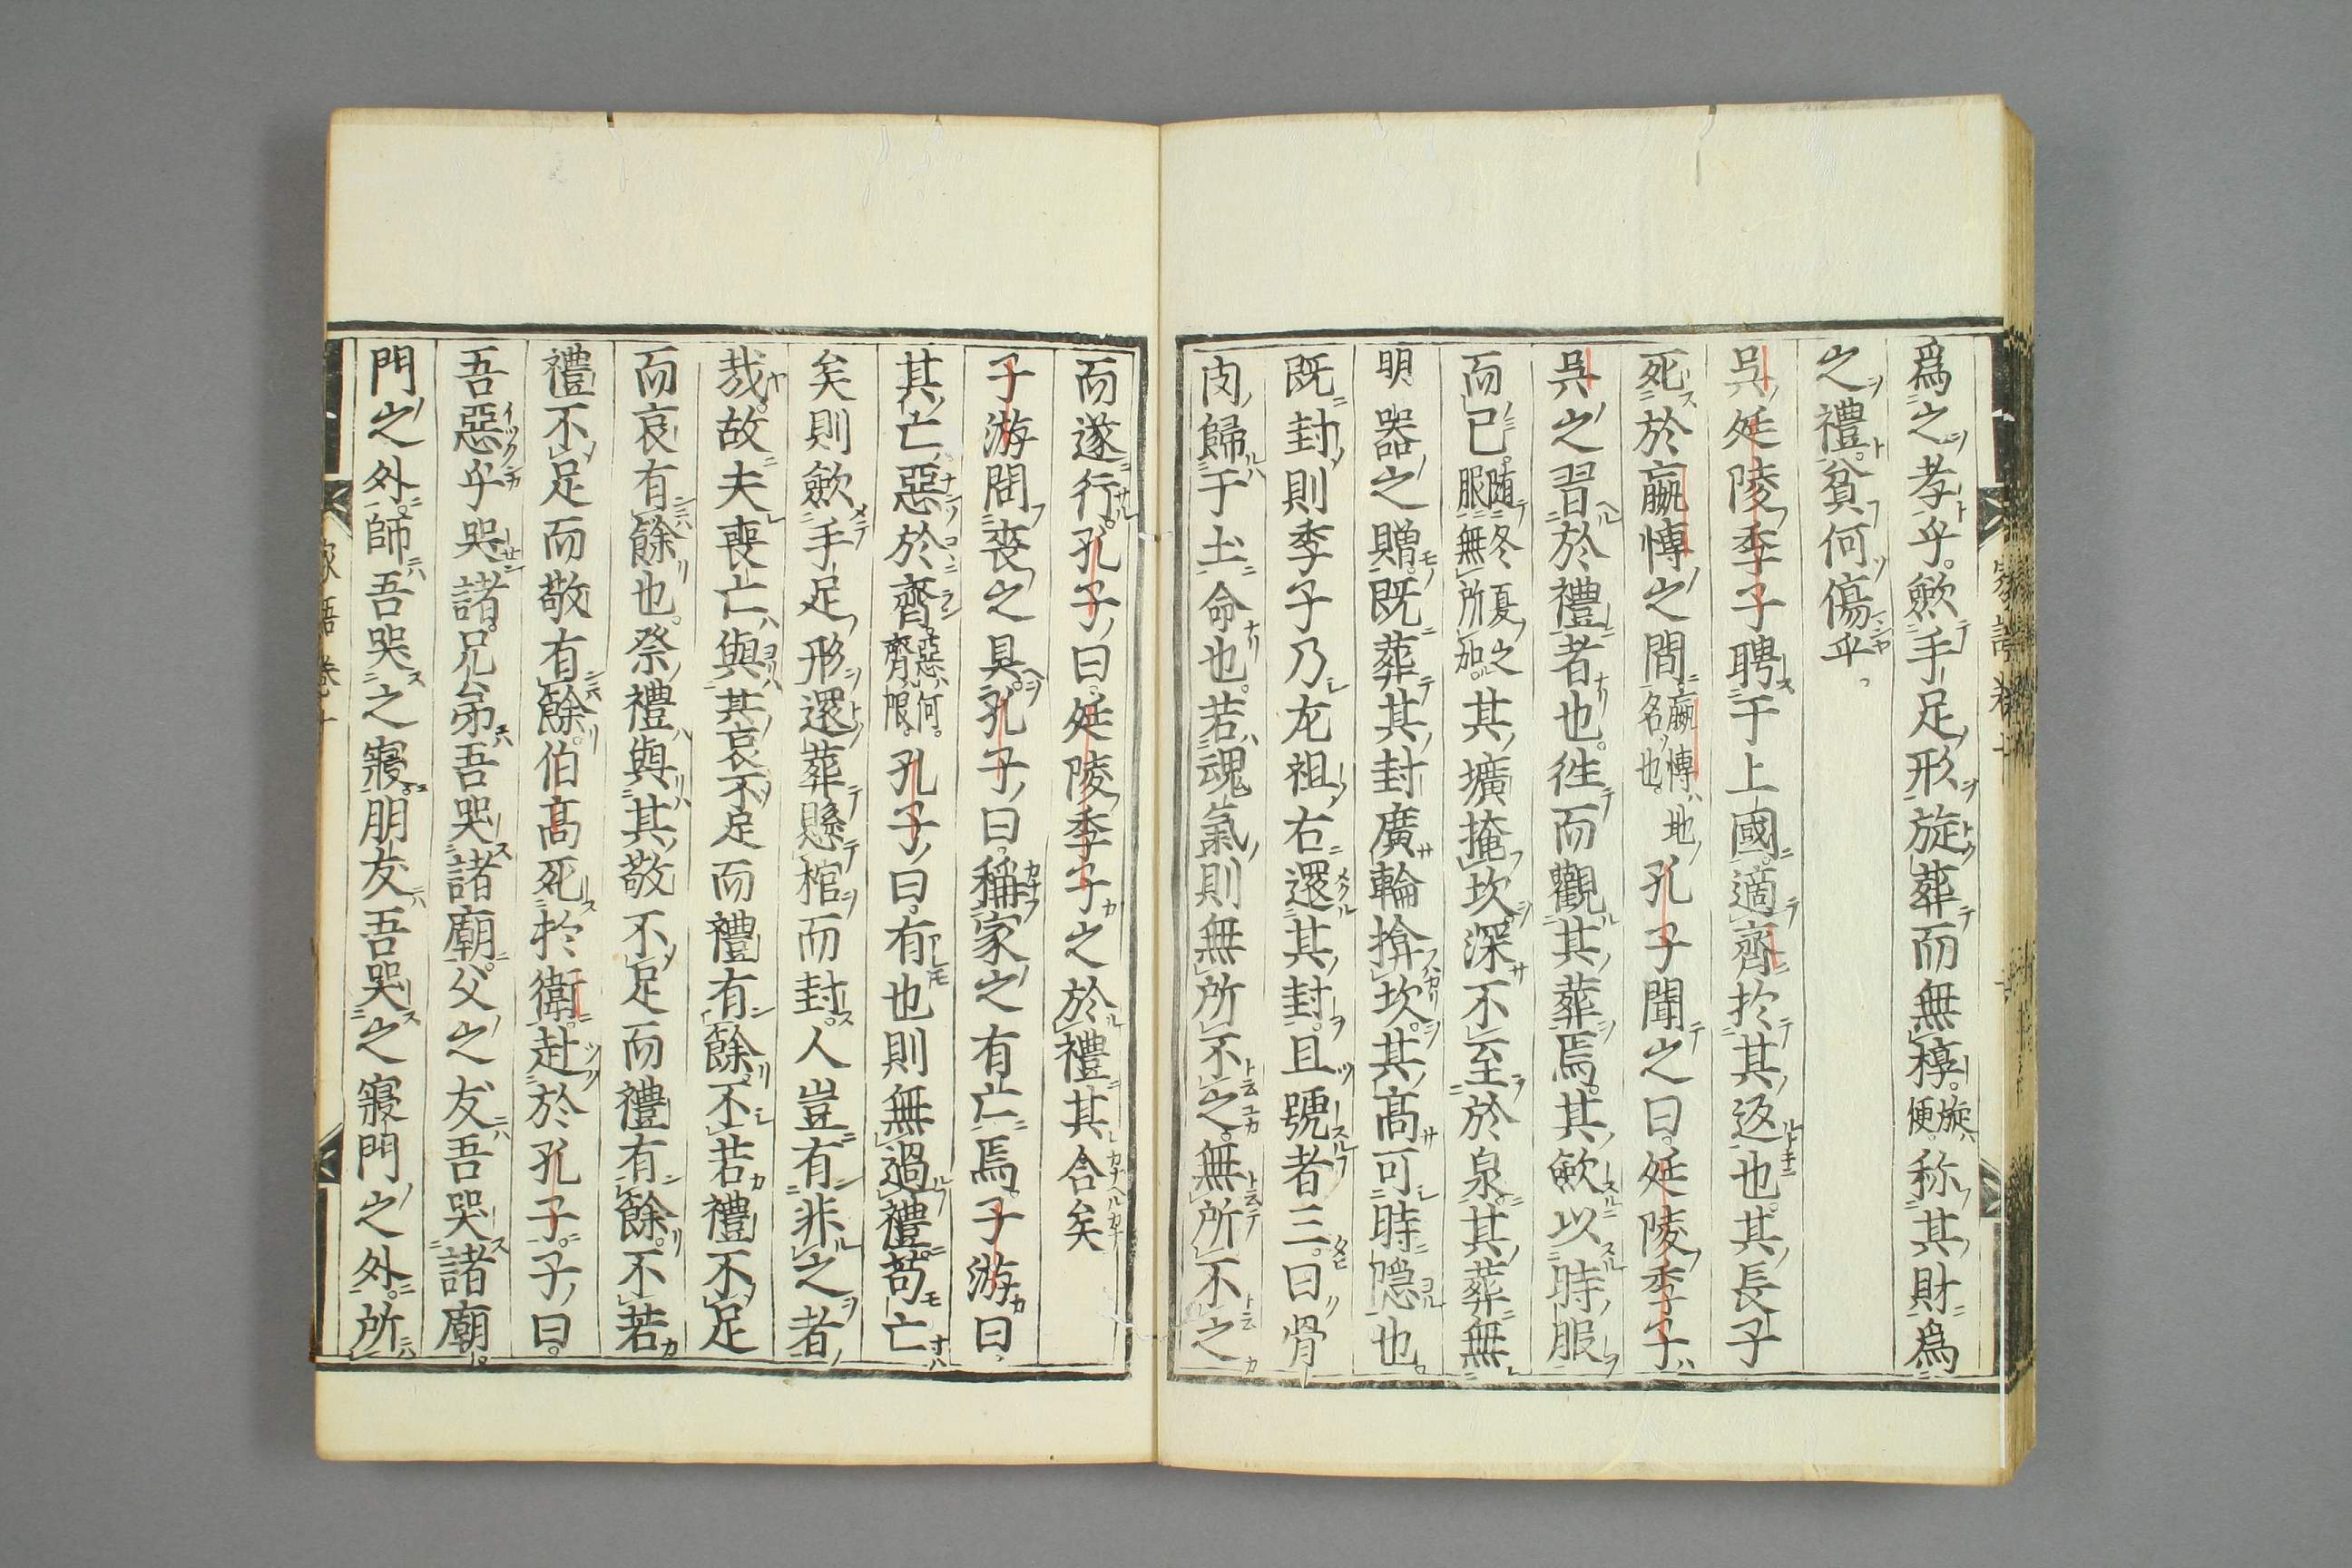 爲之孝乎。歛手足形旋葬而無椁。旋便。称其財爲
之禮。貧何傷乎。
吳延陵季子聘于上國。適齊於其返也。其長子
死於嬴博之間。嬴博地名也。孔子聞之曰。延陵季子
吳之習於禮者也。徃而觀其葬焉。其歛以時服
而已。随冬夏之服無所加。其壙掩坎深不至於泉。其葬無
明器之贈。既葬其封廣輪揜坎。其髙可時隠也。
既封則季子乃左袒右還其封。且號者三。曰骨
肉歸于土。命也。若魂氣則無所不之。無所不之
而遂行。孔子曰。延陵季子之於禮其合矣
子游問喪之具。孔子曰。稱家之有亡焉。子游曰。
其亡惡於齊。惡何。齊限。孔子曰。有也則無過禮。苟亡
矣則歛手足形還葬懸棺而封。人豈有非之者
哉。故夫喪亡與其哀不足而禮有餘。不若禮不足
而哀有餘也。祭禮與其敬不足而禮有餘。不若
禮不足而敬有餘。伯髙死於衛。赴於孔子。子曰。
吾惡乎哭諸。兄弟吾哭諸廟。父之友吾哭諸廟。
門之外。師吾哭之寢。朋友吾哭之寢門之外。所
家語卷十